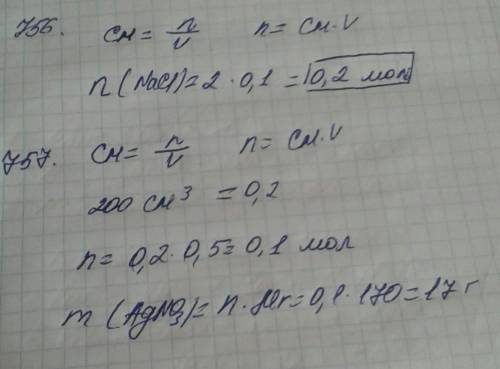 756. См = n/v n = См·v
n (NaCl) = 2 · 0,1 = 0,2 мол
757. См = n/v n = См·v
200 см³ = 0,2
n = 0,2 · 0,5 = 0,1 мол
m (AgNO₃) = n · Mr = 0,1 · 170 = 17 г